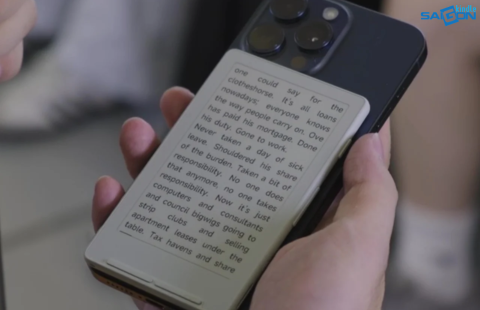 SAIGON
one could say for the
clotheshorse. It's all loans
nowadays; everyone knows
the way people carry on. Ove
has paid his mortgage. Done
his duty. Gone to work.
Never taken a day of sick
leave. Shouldered his share
of the burden. Taken a bit of
responsibility. No one does
that anymore, no one takes
responsibility. Now it's just
computers and consultants
and council bigwigs going to
strip clubs and selling
apartment leases under the
table. Tax havens and share